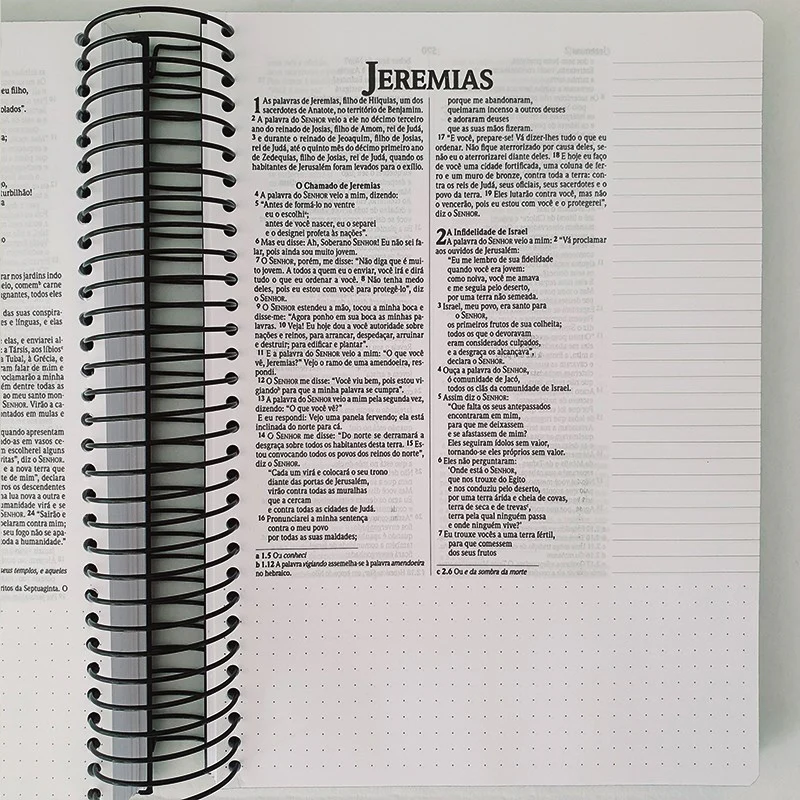 eu filho,
olados".
turbilhão!
rar nos jardins indo
elo, comemᵇ carne
ignantes, todos eles
das suas conspira-
es e línguas, e elas
elas, e enviarei al-
: a Társis, aos líbiosᶜ
a Tubal, à Grécia, e
ram falar de mim e
roclamarão a minha
ém dentre todas as
ao meu santo mon-
SENHOR. Virão a ca-
ontados em mulas e
quando apresentam
do-as em vasos ce-
n escolherei alguns
vitas", diz o SENHOR.
e a nova terra que
te de mim", declara
ros os descendentes
a lua nova a outra e
umanidade virá e se
SENHOR. 24 "Sairão e
belaram contra mim;
seu fogo não se apa-
oda a humanidade."
seus templos, e aqueles
ritos da Septuaginta. O
JEREMIAS
1 As palavras de Jeremias, filho de Hilquias, um dos
sacerdotes de Anatote, no território de Benjamim.
2 A palavra do SENHOR veio a ele no décimo terceiro
ano do reinado de Josias, filho de Amom, rei de Judá,
3 e durante o reinado de Jeoaquim, filho de Josias,
rei de Judá, até o quinto mês do décimo primeiro ano
de Zedequias, filho de Josias, rei de Judá, quando os
habitantes de Jerusalém foram levados para o exílio.
O Chamado de Jeremias
4 A palavra do SENHOR veio a mim, dizendo:
5 "Antes de formá-lo no ventre
eu o escolhiᵃ;
antes de você nascer, eu o separei
e o designei profeta às nações".
6 Mas eu disse: Ah, Soberano SENHOR! Eu não sei fa-
lar, pois ainda sou muito jovem.
7 O SENHOR, porém, me disse: "Não diga que é mui-
to jovem. A todos a quem eu o enviar, você irá e dirá
tudo o que eu ordenar a você. 8 Não tenha medo
deles, pois eu estou com você para protegê-lo", diz
o SENHOR.
9 O SENHOR estendeu a mão, tocou a minha boca e
disse-me: "Agora ponho em sua boca as minhas pa-
lavras. 10 Veja! Eu hoje dou a você autoridade sobre
nações e reinos, para arrancar, despedaçar, arruinar
e destruir; para edificar e plantar".
11 E a palavra do SENHOR veio a mim: "O que você
vê, Jeremias?" Vejo o ramo de uma amendoeira, res-
pondi.
12 O SENHOR me disse: "Você viu bem, pois estou vi-
giandoᵇ para que a minha palavra se cumpra".
13 A palavra do SENHOR veio a mim pela segunda vez,
dizendo: "O que você vê?"
E eu respondi: Vejo uma panela fervendo; ela está
inclinada do norte para cá.
14 O SENHOR me disse: "Do norte se derramará a
desgraça sobre todos os habitantes desta terra. 15 Es-
tou convocando todos os povos dos reinos do norte",
diz o SENHOR.
"Cada um virá e colocará o seu trono
diante das portas de Jerusalém,
virão contra todas as muralhas
que a cercam
e contra todas as cidades de Judá.
16 Pronunciarei a minha sentença
contra o meu povo
por todas as suas maldades;
a 1.5 Ou conheci
b 1.12 A palavra vigiando assemelha-se à palavra amendoeira
no hebraico.
porque me abandonaram,
queimaram incenso a outros deuses
e adoraram deuses
que as suas mãos fizeram.
17 "E você, prepare-se! Vá dizer-lhes tudo o que eu
ordenar. Não fique aterrorizado por causa deles, se-
não eu o aterrorizarei diante deles. 18 E hoje eu faço
de você uma cidade fortificada, uma coluna de fer-
ro e um muro de bronze, contra toda a terra: con-
tra os reis de Judá, seus oficiais, seus sacerdotes e o
povo da terra. 19 Eles lutarão contra você, mas não
o vencerão, pois eu estou com você e o protegerei",
diz o SENHOR.
2 A Infidelidade de Israel
A palavra do SENHOR veio a mim: 2 "Vá proclamar
aos ouvidos de Jerusalém:
"Eu me lembro de sua fidelidade
quando você era jovem:
como noiva, você me amava
e me seguia pelo deserto,
por uma terra não semeada.
3 Israel, meu povo, era santo para
o SENHOR,
os primeiros frutos de sua colheita;
todos os que o devoravam
eram considerados culpados,
e a desgraça os alcançava",
declara o SENHOR.
4 Ouça a palavra do SENHOR,
ó comunidade de Jacó,
todos os clãs da comunidade de Israel.
5 Assim diz o SENHOR:
"Que falta os seus antepassados
encontraram em mim,
para que me deixassem
e se afastassem de mim?
Eles seguiram ídolos sem valor,
tornando-se eles próprios sem valor.
6 Eles não perguntaram:
'Onde está o SENHOR,
que nos trouxe do Egito
e nos conduziu pelo deserto,
por uma terra árida e cheia de covas,
terra de seca e de trevasᶜ,
terra pela qual ninguém passa
e onde ninguém vive?'
7 Eu trouxe vocês a uma terra fértil,
para que comessem
dos seus frutos
c 2.6 Ou e da sombra da morte